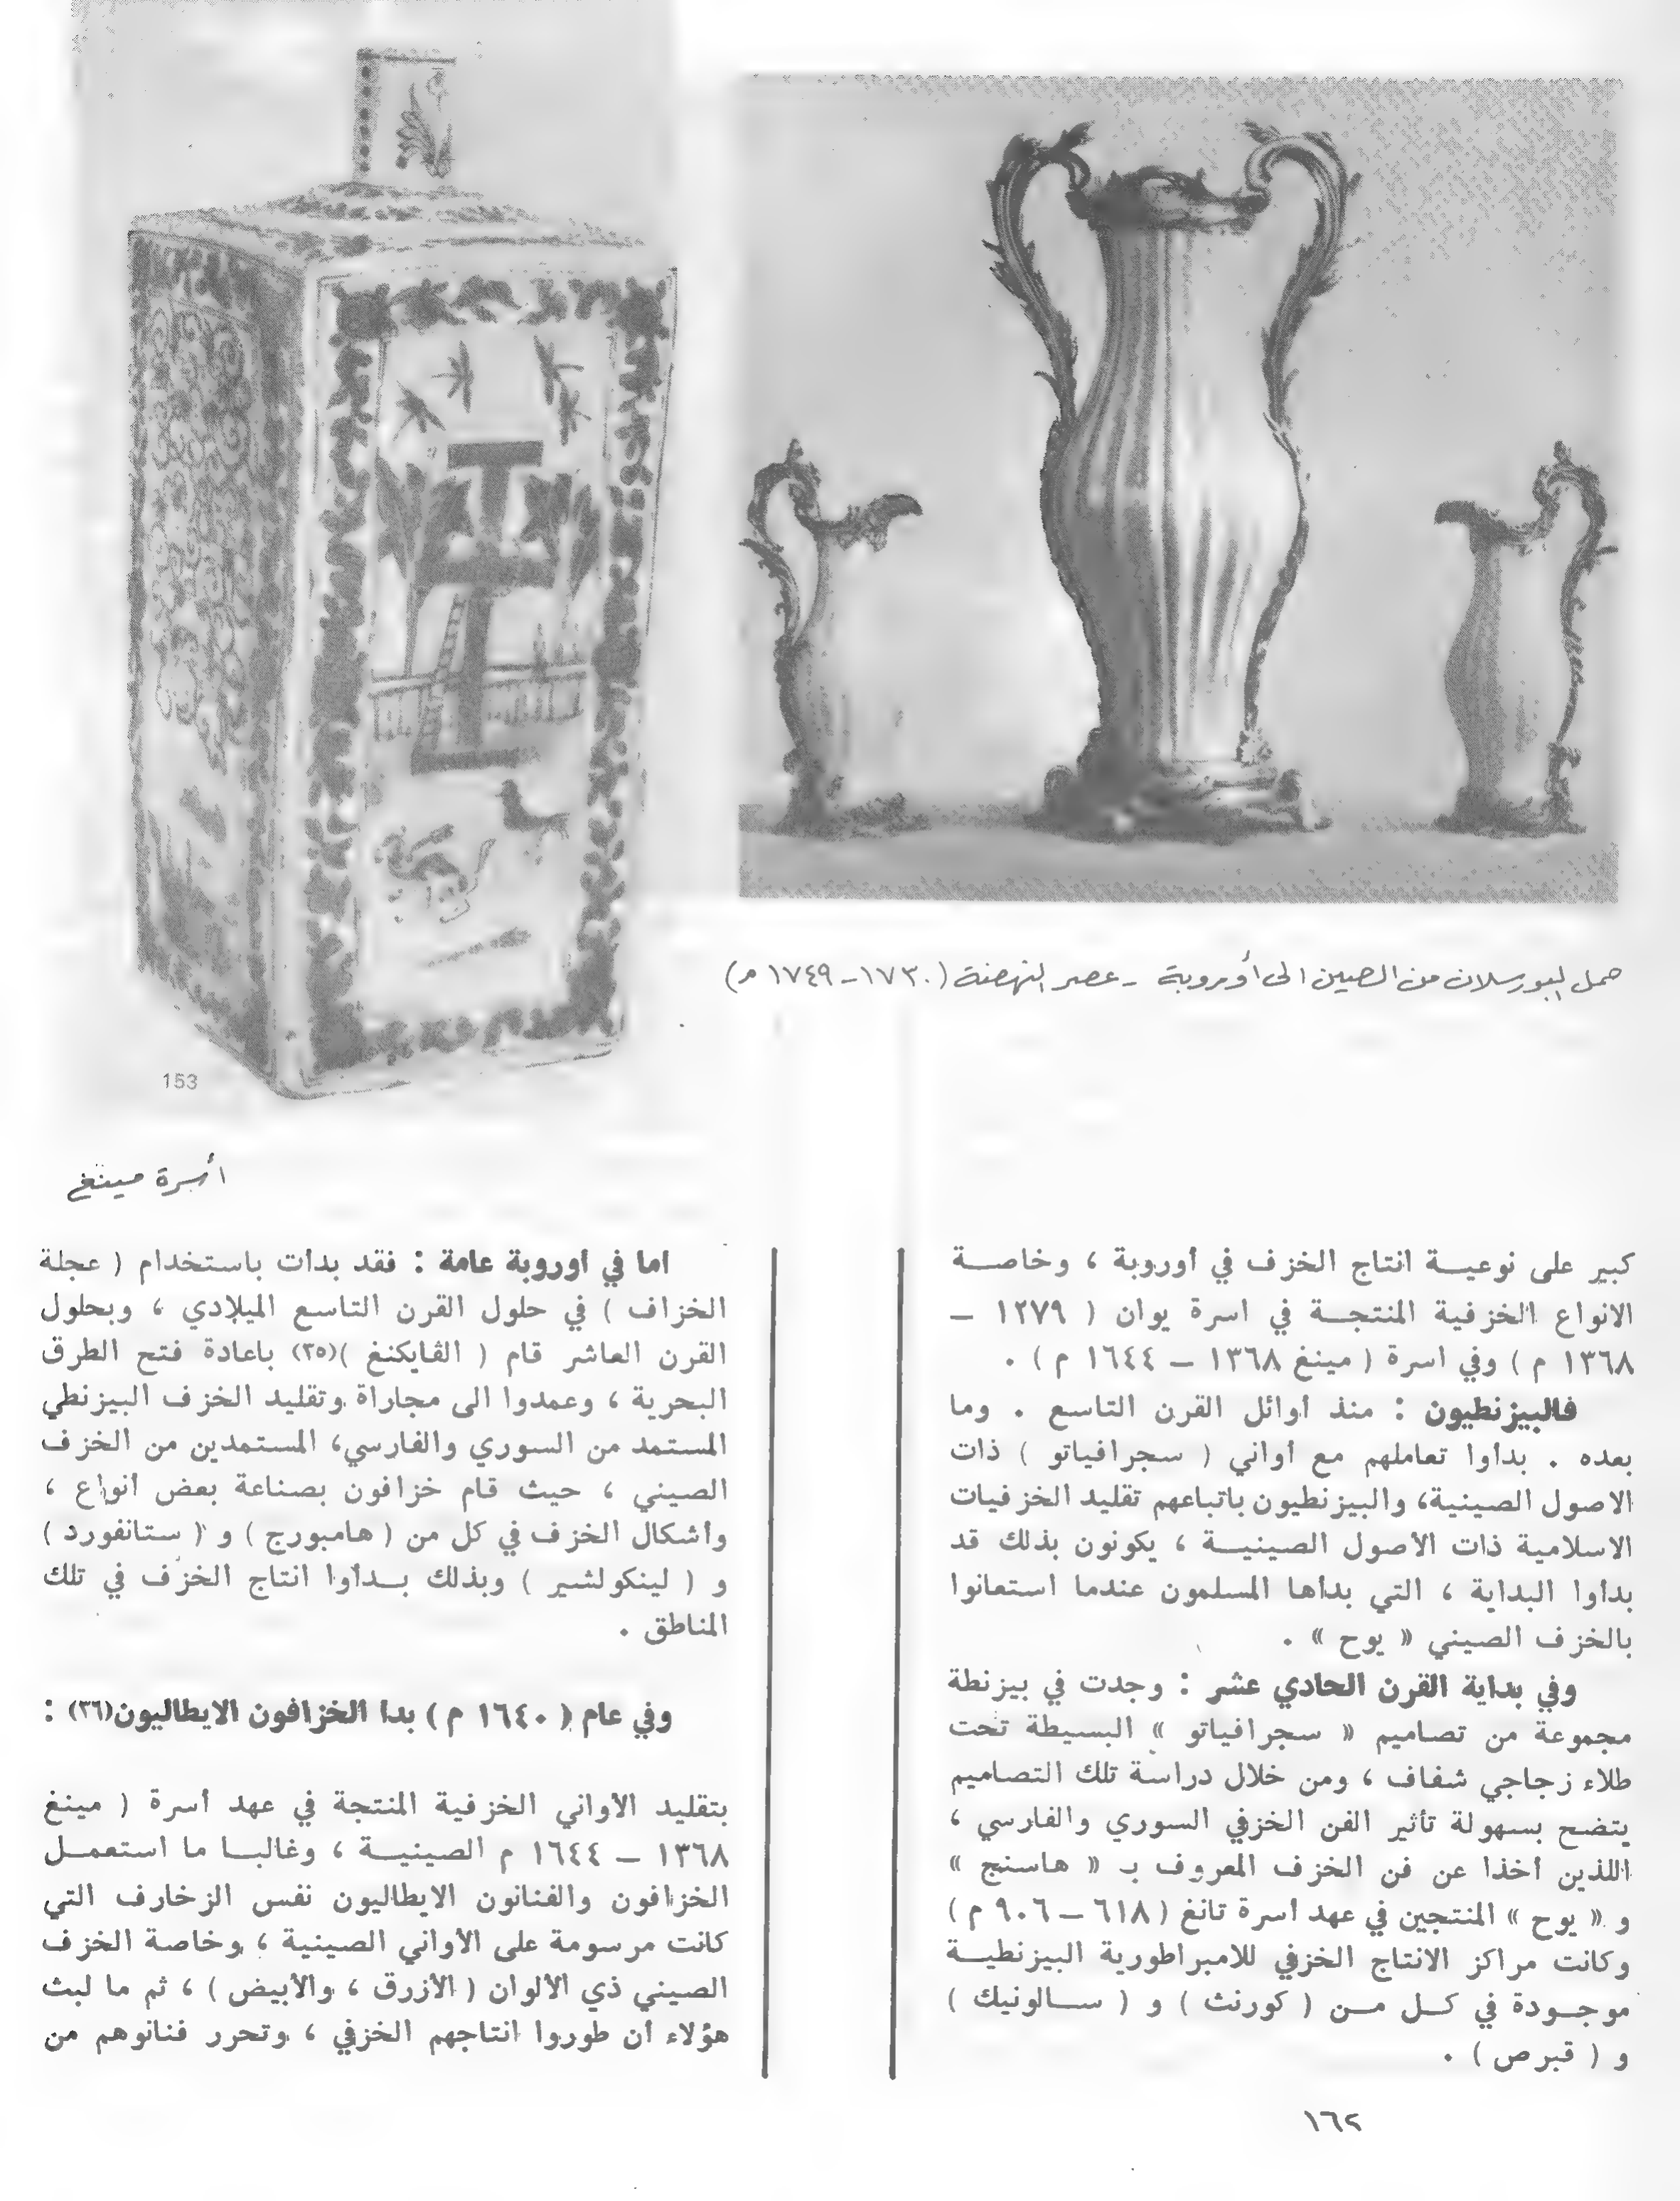 حمل البورسلان من الصين الى أوروبة - عصر النهضة (١٧٣٠ - ١٧٤٩ م)
153
أسرة مينغ
كبير على نوعيــة انتاج الخزف في أوروبة ، وخاصــة
الانواع الخزفية المنتجــة في اسرة يوان ( ١٢٧٩ –
١٣٦٨ م ) وفي اسرة ( مينغ ١٣٦٨ – ١٦٤٤ م ) .
فالبيزنطيون : منذ أوائل القرن التاسع . وما
بعده . بدأوا تعاملهم مع أواني ( سجرافياتو ) ذات
الاصول الصينية، والبيزنطيون باتباعهم تقليد الخزفيات
الاسلامية ذات الأصول الصينيــة ، يكونون بذلك قد
بدأوا البداية ، التي بدأها المسلمون عندما استعانوا
بالخزف الصيني « يوح » .
وفي بداية القرن الحادي عشر : وجدت في بيزنطة
مجموعة من تصاميم « سجرافياتو » البسيطة تحت
طلاء زجاجي شفاف ، ومن خلال دراسة تلك التصاميم
يتضح بسهولة تأثير الفن الخزفي السوري والفارسي ،
اللذين أخذا عن فن الخزف المعروف بـ « هاسنج »
و « يوح » المنتجين في عهد أسرة تانغ ( ٦١٨ – ٩٠٦ م )
وكانت مراكز الانتاج الخزفي للامبراطورية البيزنطيــة
موجــودة في كــل مــن ( كورنث ) و ( ســالونيك )
و ( قبرص ) .
اما في اوروبة عامة : فقد بدأت باستخدام ( عجلة
الخزاف ) في حلول القرن التاسع الميلادي ، وبحلول
القرن العاشر قام ( الڤايكنغ )(٣٥) باعادة فتح الطرق
البحرية ، وعمدوا الى مجاراة وتقليد الخزف البيزنطي
المستمد من السوري والفارسي، المستمدين من الخزف
الصيني ، حيث قام خزافون بصناعة بعض أنواع ،
وأشكال الخزف في كل من ( هامبورج ) و ( ستانفورد )
و ( لينكولشير ) وبذلك بــدأوا انتاج الخزف في تلك
المناطق .
وفي عام ( ١٦٤٠ م ) بدا الخزافون الايطاليون(٣٦) :
بتقليد الأواني الخزفية المنتجة في عهد أسرة ( مينغ
١٣٦٨ – ١٦٤٤ م الصينيــة ، وغالبــا ما استعمــل
الخزافون والفنانون الايطاليون نفس الزخارف التي
كانت مرسومة على الأواني الصينية ، وخاصة الخزف
الصيني ذي الألوان ( الأزرق ، والأبيض ) ، ثم ما لبث
هؤلاء أن طوروا انتاجهم الخزفي ، وتحرر فنانوهم من
١٦٢